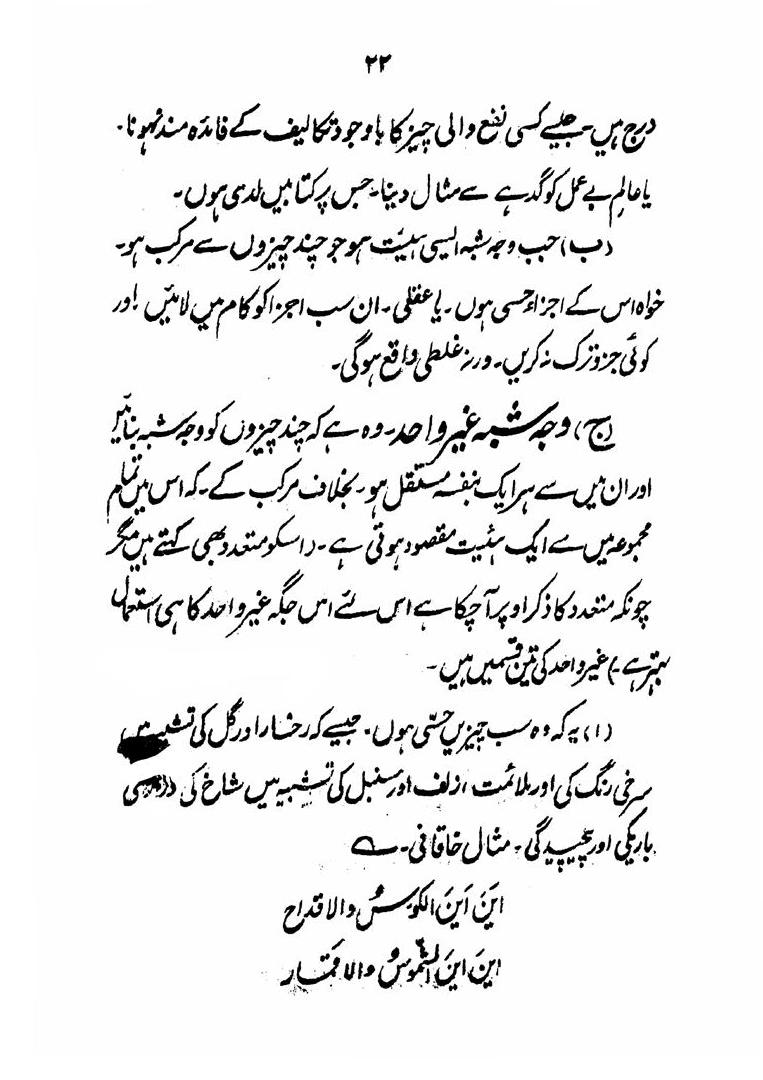 ۲۲
درج ہیں۔ جیسے کسی نفع والی چیز کا باوجود تکالیف کے فائدہ مند نہونا۔
یا عالم بے عمل کو گدہے سے مثال دینا۔ جس پر کتابیں لدی ہوں۔
(ب) جب وجہ شبہ ایسی ہیئت ہو جو چند چیزوں سے مرکب ہو۔
خواہ اس کے اجزاء حسی ہوں۔ یا عقلی۔ ان سب اجزا کو کام میں لائیں اور
کوئی جزو ترک نہ کریں۔ ورنہ غلطی واقع ہوگی۔
(ج) وجہ شبہ غیر واحد۔ وہ ہے کہ چند چیزوں کو وجہ شبہ بنائیں
اور ان میں سے ہر ایک بنفسہ مستقل ہو۔ بخلاف مرکب کے۔ کہ اس میں تمام
مجموعہ میں سے ایک ہئیت مقصود ہوتی ہے۔ (اسکو متعدد بھی کہتے ہیں مگر
چونکہ متعدد کا ذکر اوپر آچکا ہے اس لئے اس جگہ غیر واحد کا ہی استعمال
بہتر ہے۔) غیر واحد کی تین قسمیں ہیں۔
(۱) یہ کہ وہ سب چیزیں حسّی ہوں۔ جیسے کہ رخسار اور گل کی تشبیہ میں
سرخی رنگ کی اور ملائمت، زلف اور سنبل کی تشبیہ میں شاخ کی
باریکی اور پیچیدگی۔ مثال خاقانی۔ ؎
این اَینَ الکؤسُ والاقداح
این اینَ الشموسُ والاقمار